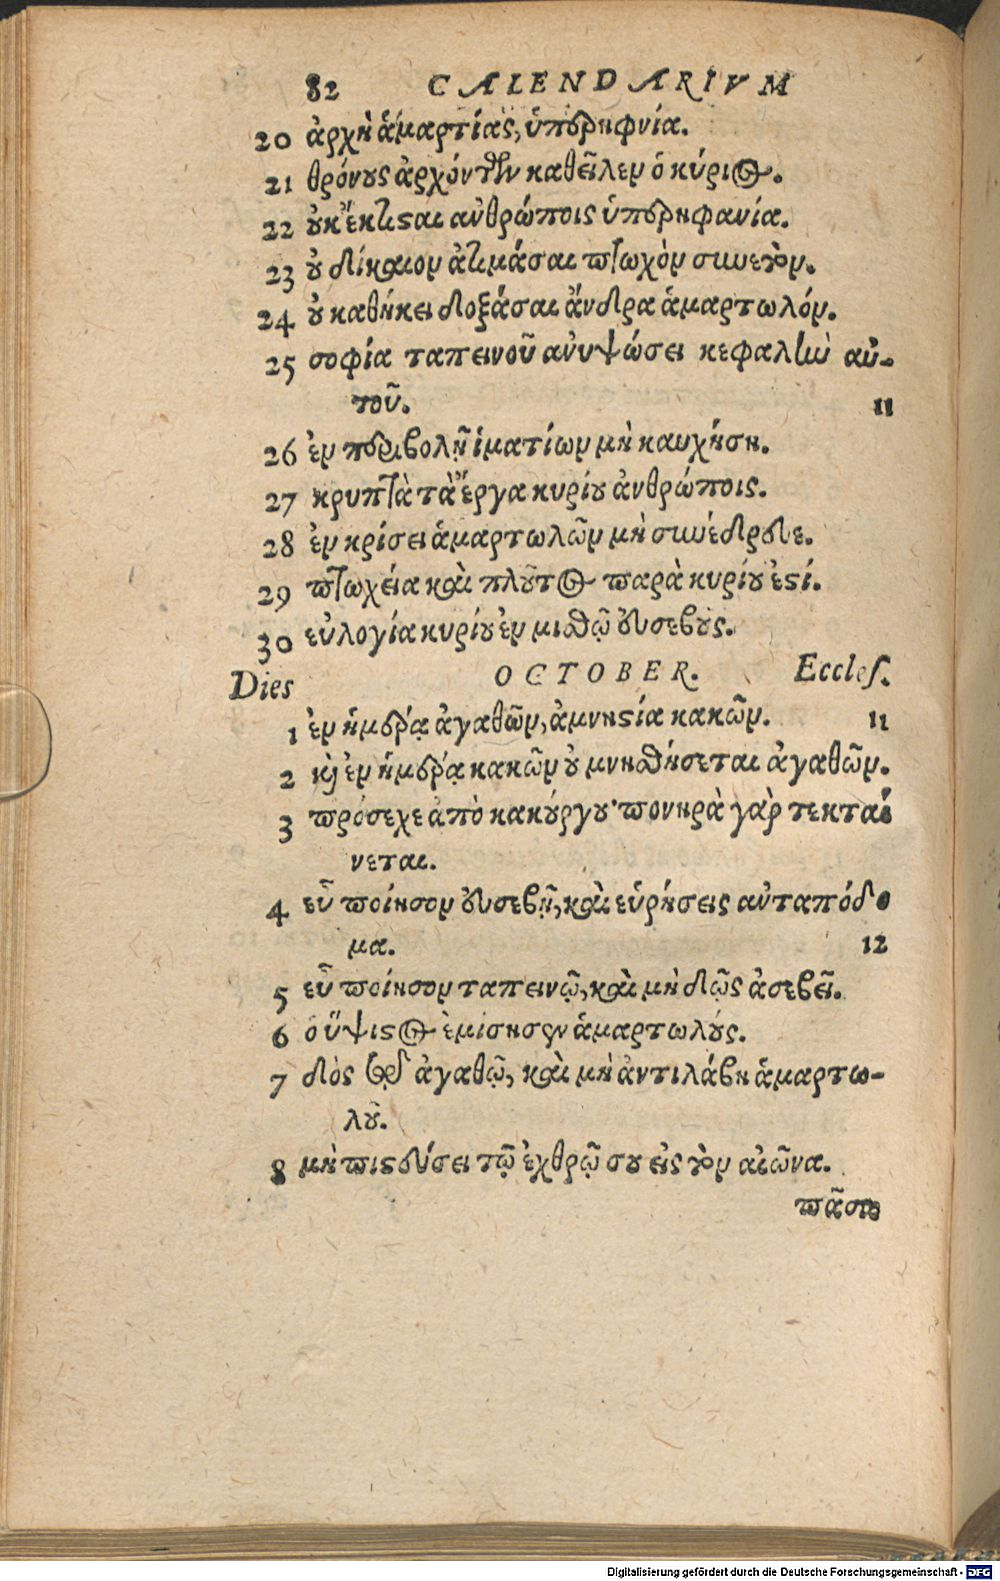 82 CALENDARIVM
20 ἀρχὴ ἁμαρτίας, ὑπερηφνία.
21 θρόνους ἀρχόντων καθεῖλεν ὁ κύριος.
22 οὐκ ἔκτισαι ἀνθρώποις ὑπερηφανία.
23 οὐ δίκαιον ἀτιμάσαι πτωχὸν συνετόν.
24 οὐ καθήκει δοξάσαι ἄνδρα ἁμαρτωλόν.
25 σοφία ταπεινοῦ ἀνυψώσει κεφαλὴν αὐ-
τοῦ. 11
26 ἐν περιβολῇ ἱματίων μὴ καυχήσῃ.
27 κρυπτὰ τὰ ἔργα κυρίου ἀνθρώποις.
28 ἐν κρίσει ἁμαρτωλῶν μὴ συνέδρευε.
29 πτωχεία καὶ πλοῦτος παρὰ κυρίου ἐστί.
30 εὐλογία κυρίου ἐν μισθῷ εὐσεβοῦς.
Dies OCTOBER. Eccles.
1 ἐν ἡμέρᾳ ἀγαθῶν, ἀμνηστία κακῶν. 11
2 καὶ ἐν ἡμέρᾳ κακῶν οὐ μνησθήσεται ἀγαθῶν.
3 πρόσεχε ἀπὸ κακούργου· πονηρὰ γὰρ τεκταί
νεται.
4 εὖ ποίησον εὐσεβῇ, καὶ εὑρήσεις αὐταπόδο
μα. 12
5 εὖ ποίησον ταπεινῷ, καὶ μὴ δῷς ἀσεβεῖ.
6 ὁ ὕψιστος ἐμίσησεν ἁμαρτωλούς.
7 δὸς τῷ ἀγαθῷ, καὶ μὴ ἀντιλάβῃ ἁμαρτω-
λοῦ.
8 μὴ πιστεύσει τῷ ἐχθρῷ σου εἰς τὸν αἰῶνα.
πᾶσιν
Digitalisierung gefördert durch die Deutsche Forschungsgemeinschaft - DFG